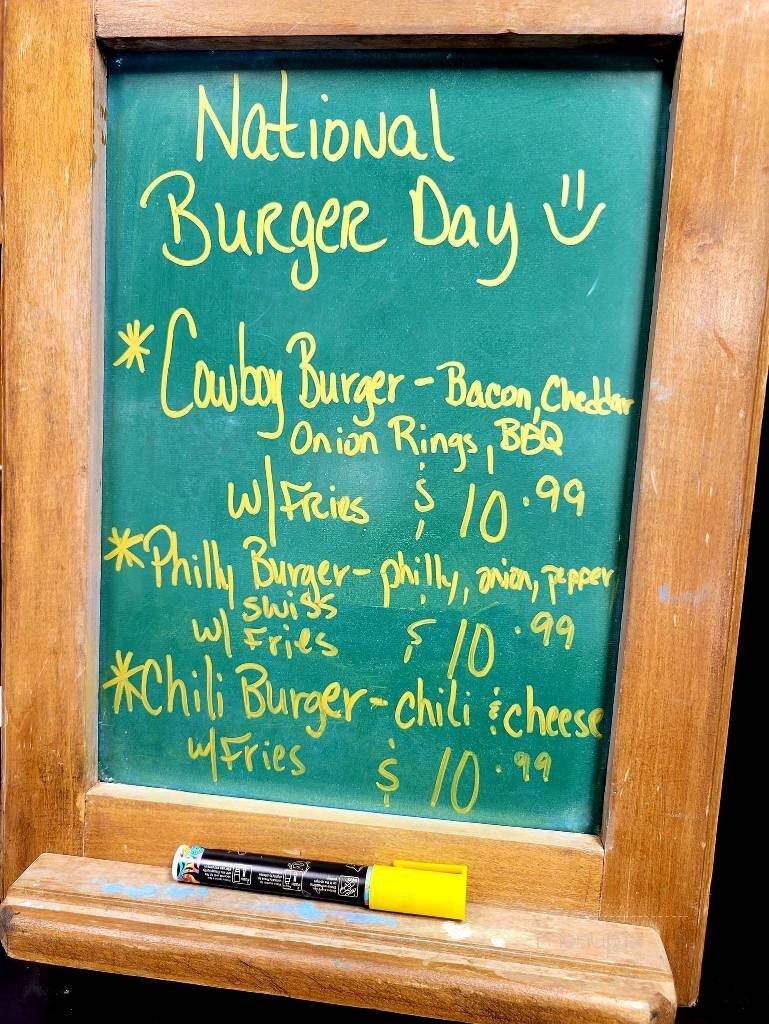 National
Burger Day
* Cowboy Burger - Bacon, Cheddar
Onion Rings, BBQ
w/Fries $10.99
* Philly Burger - philly, onion, pepper
swiss
w/ Fries $10.99
* Chili Burger - chili & cheese
w/Fries $10.99